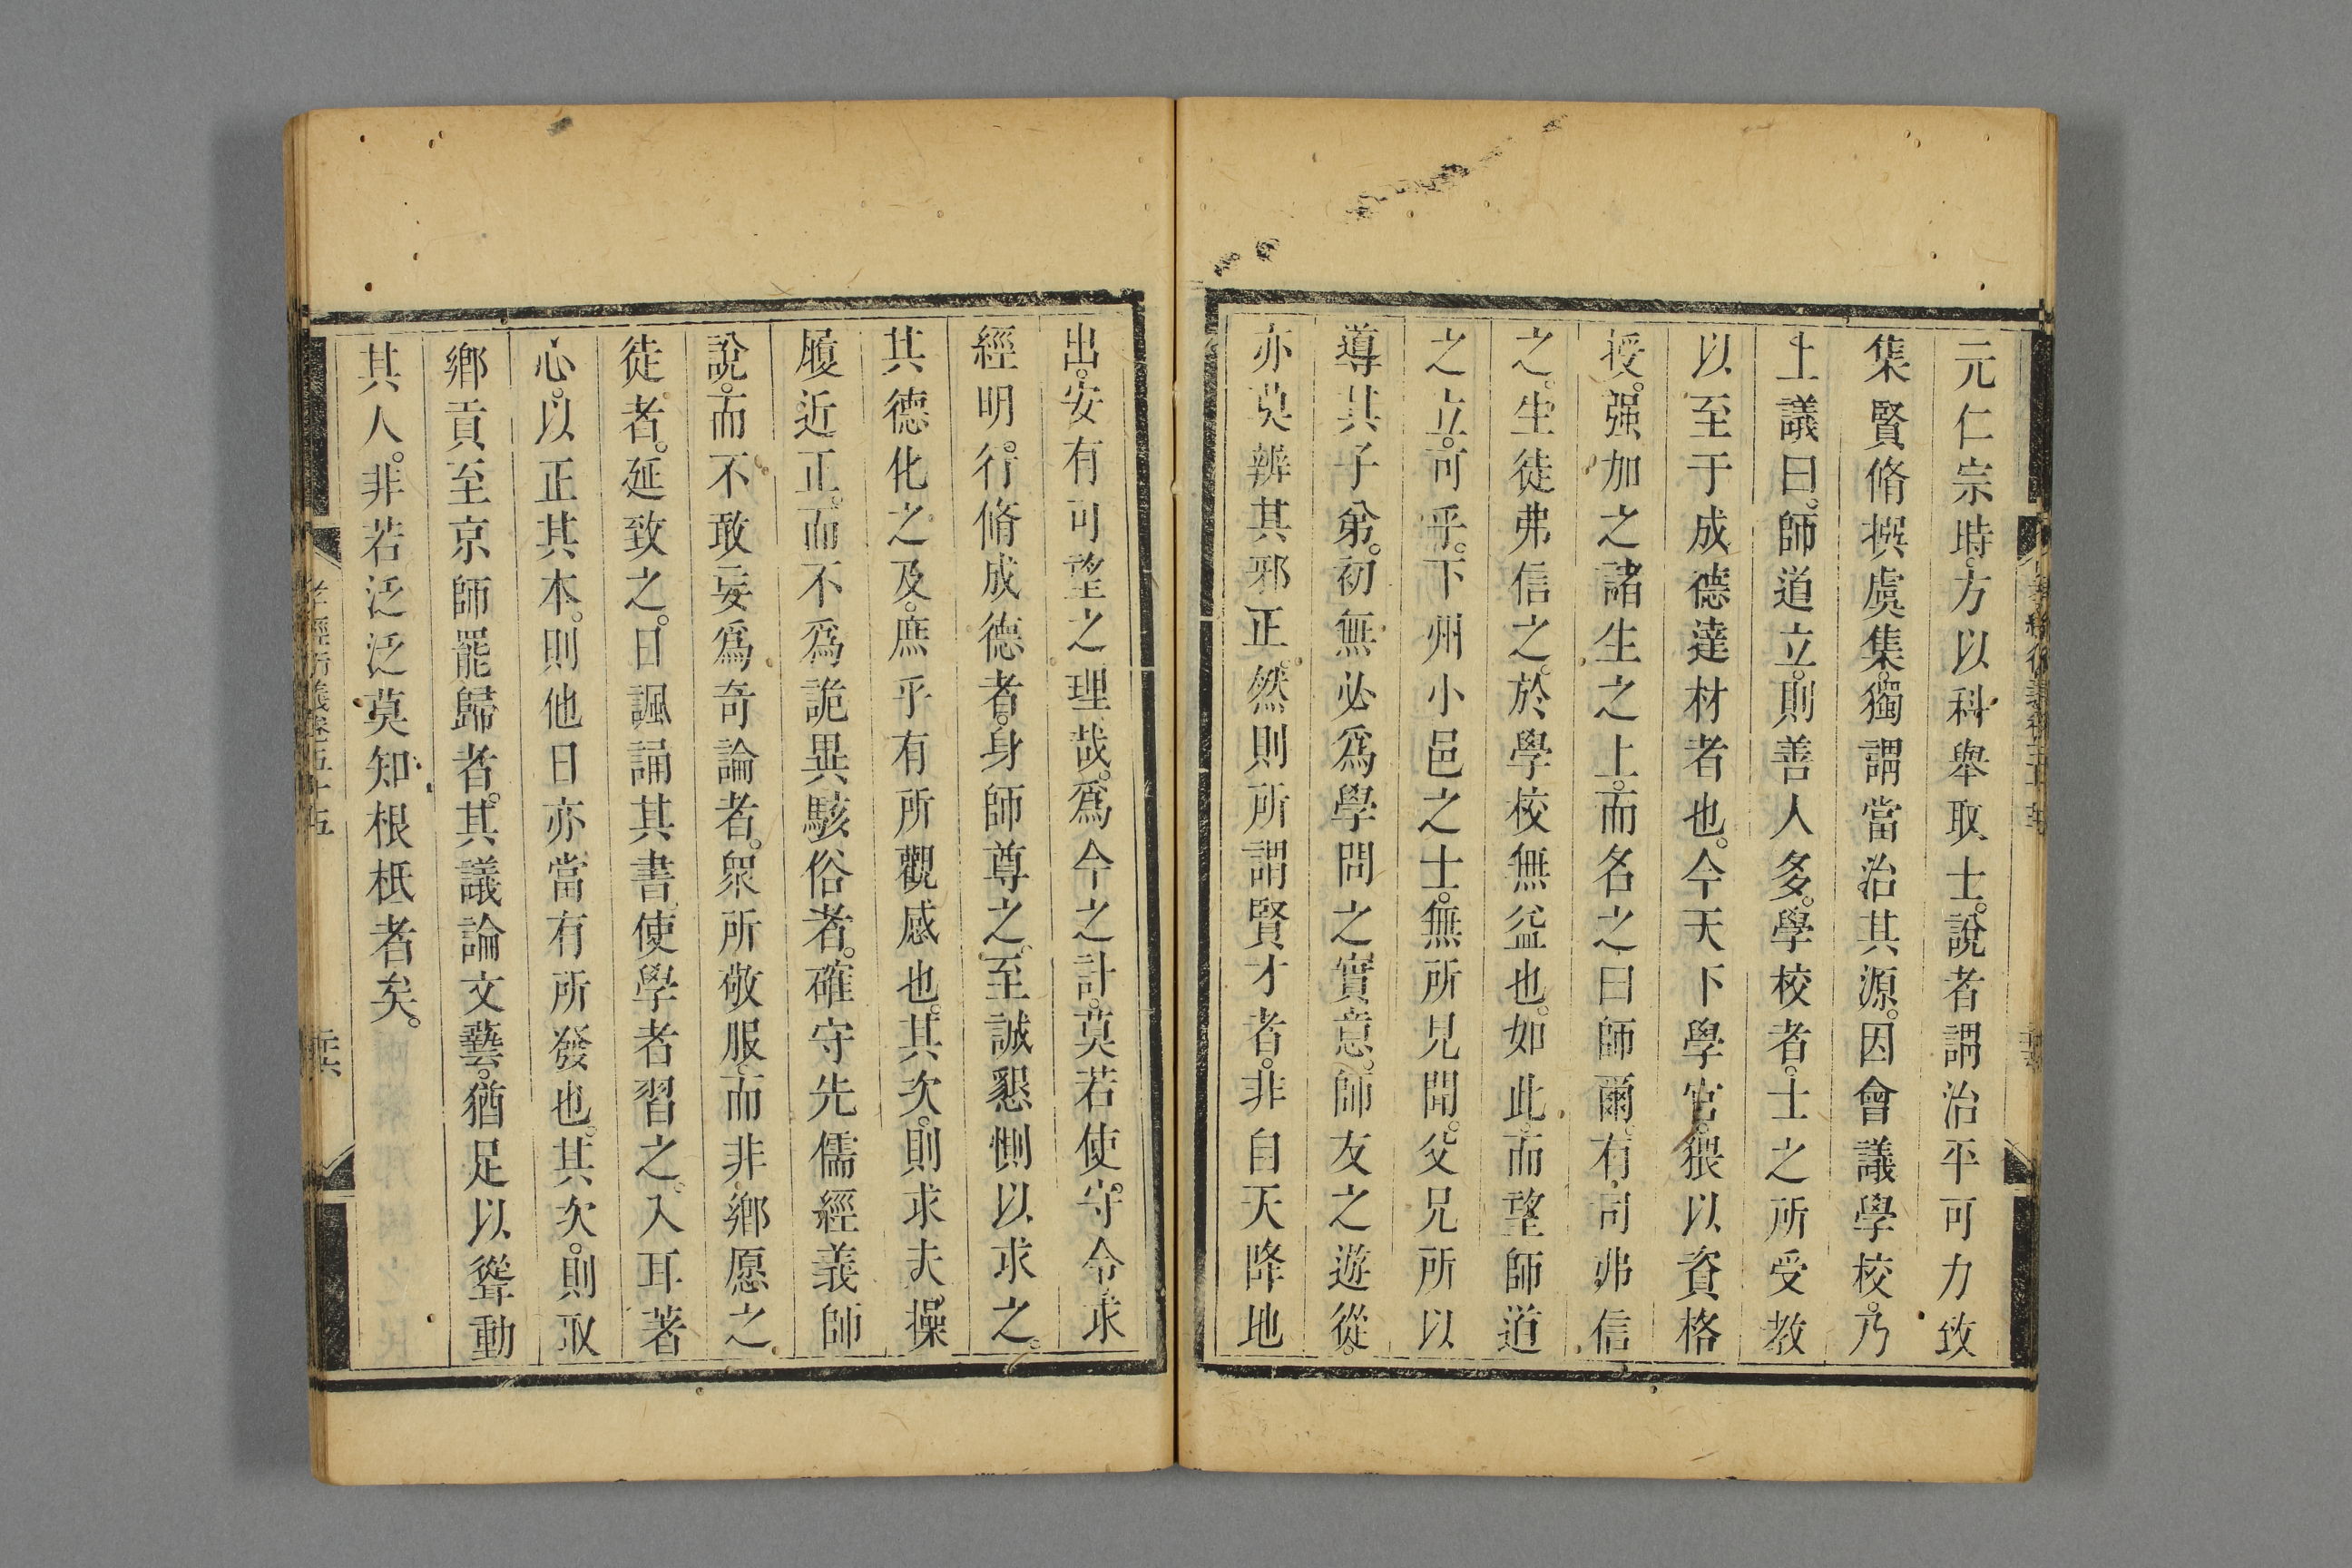 元仁宗時。方以科舉取士。說者謂治平可力致
集賢脩撰虞集。獨謂當治其源。因會議學校。乃
上議曰。師道立。則善人多。學校者。士之所受教
以至于成德達材者也。今天下學官。猥以資格
授。强加之諸生之上。而名之曰師爾。有司弗信
之。生徒弗信之。於學校無益也。如此。而望師道
之立。可乎。下州小邑之士。無所見聞。父兄所以
導其子弟。初無必爲學問之實意。師友之遊從。
亦莫辨其邪正。然則所謂賢才者。非自天降地
出。安有可望之理哉。爲今之計。莫若使。守令求
經明。行脩成德者。身師尊之。至誠懇惻以求之。
其德化之及。庶乎有所觀感也。其次。則求夫。操
履近正。而不爲詭異駭俗者。確守先儒經義師
說。而不敢妄爲奇論者。衆所敬服。而非鄉愿之
徒者。延致之。日諷誦其書。使學者習之。入耳著
心。以正其本。則他日亦當有所發也。其次。則取
鄉貢至京師罷歸者。其議論文藝。猶足以聳動
其人。非若泛泛莫知根柢者矣。
孝經衍義卷五十五